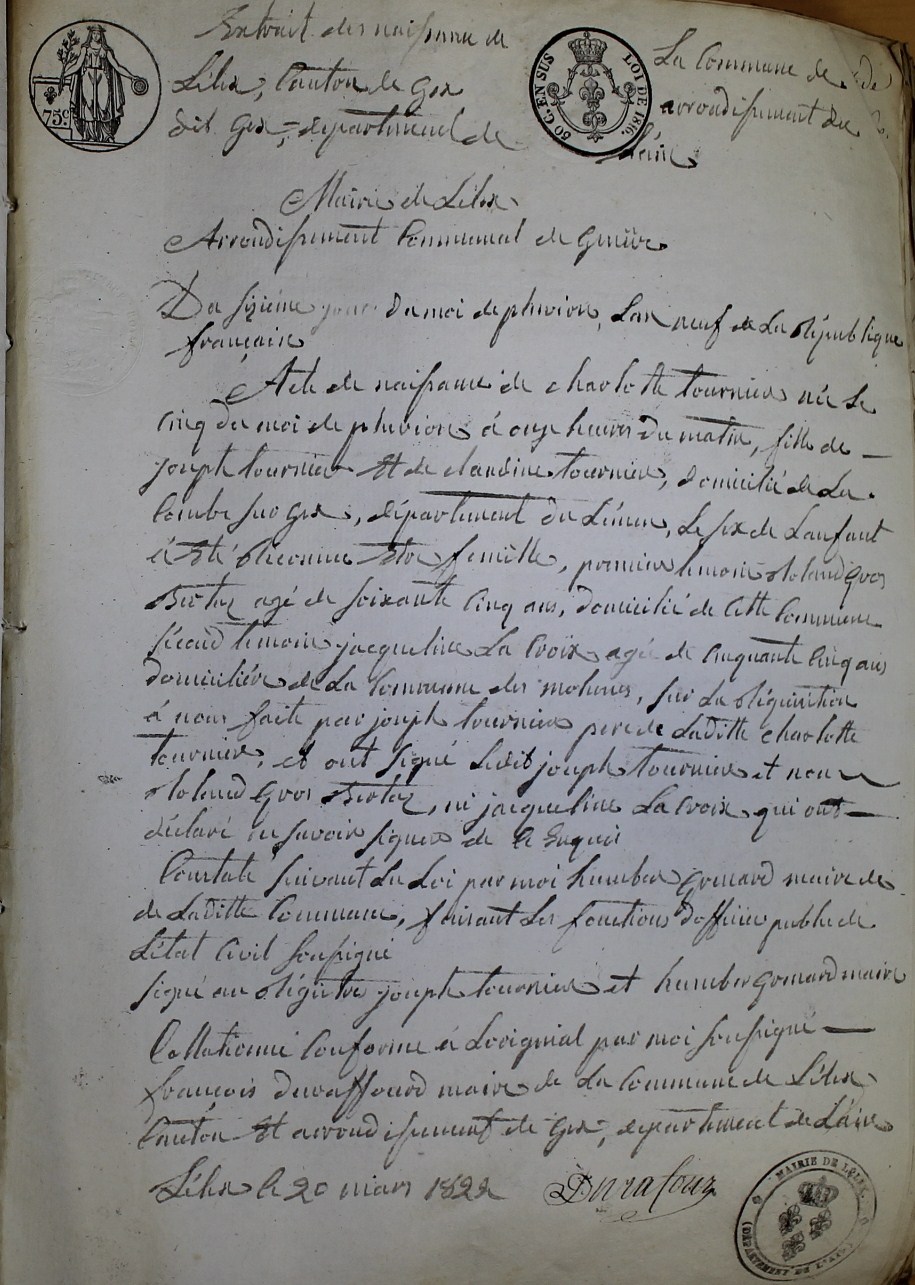 Extrait des naissance de La Commune de
Lélex, Canton de Gex arrondissement du
dit Gex, département de L'ain
75c
50 C. EN SUS LOI DE 1816.
Mairie de Lélex
Arrondissement Communal de Genève
Du sizième jour du moi de pluvion, Lan neuf de La République
française
Acte de naissance de charlotte tournier née Le
Cinq du moi de pluvion à onze heures du matin, fille de
joseph tournier Et de claudine tournier, domicilié de La
Combe sur Gex, département du Léman, Le sex de Lanfant
à Eté Réconnu Etre femelle, premier temoin Roland Gros
Burtoz agé de soixante Cinq ans, domicilié de Cette Commune
sécond temoin jacqueline La Croix agée de Cinquante Cinq ans
domiciliée de La Commune des molunes, sur La Réquisition
à nous faite par joseph tournier pere de Laditte charlotte
tournier, et ont signé Ledit joseph tournier et non
Roland Gros Burtoz, ni jacqueline La Croix qui ont
déclaré ne savoir signer de Ce Enquis
Constaté suivant La Loi par moi humber gomard maire de
de Laditte Commune, faisant Les fonctions dofficier public de
L'état Civil soussigné
signé au Régistre joseph tournier et humber gomard maire
Collationné Conforme à Loriginal par moi soussigné
françois duraffourd maire de La Commune de Lélex
Canton Et arrondissement de Gex, département de L'ain
Lélex le 20 mars 1822 Durafour
MAIRIE DE LELEX
(DÉPARTEMENT DE L'AIN)